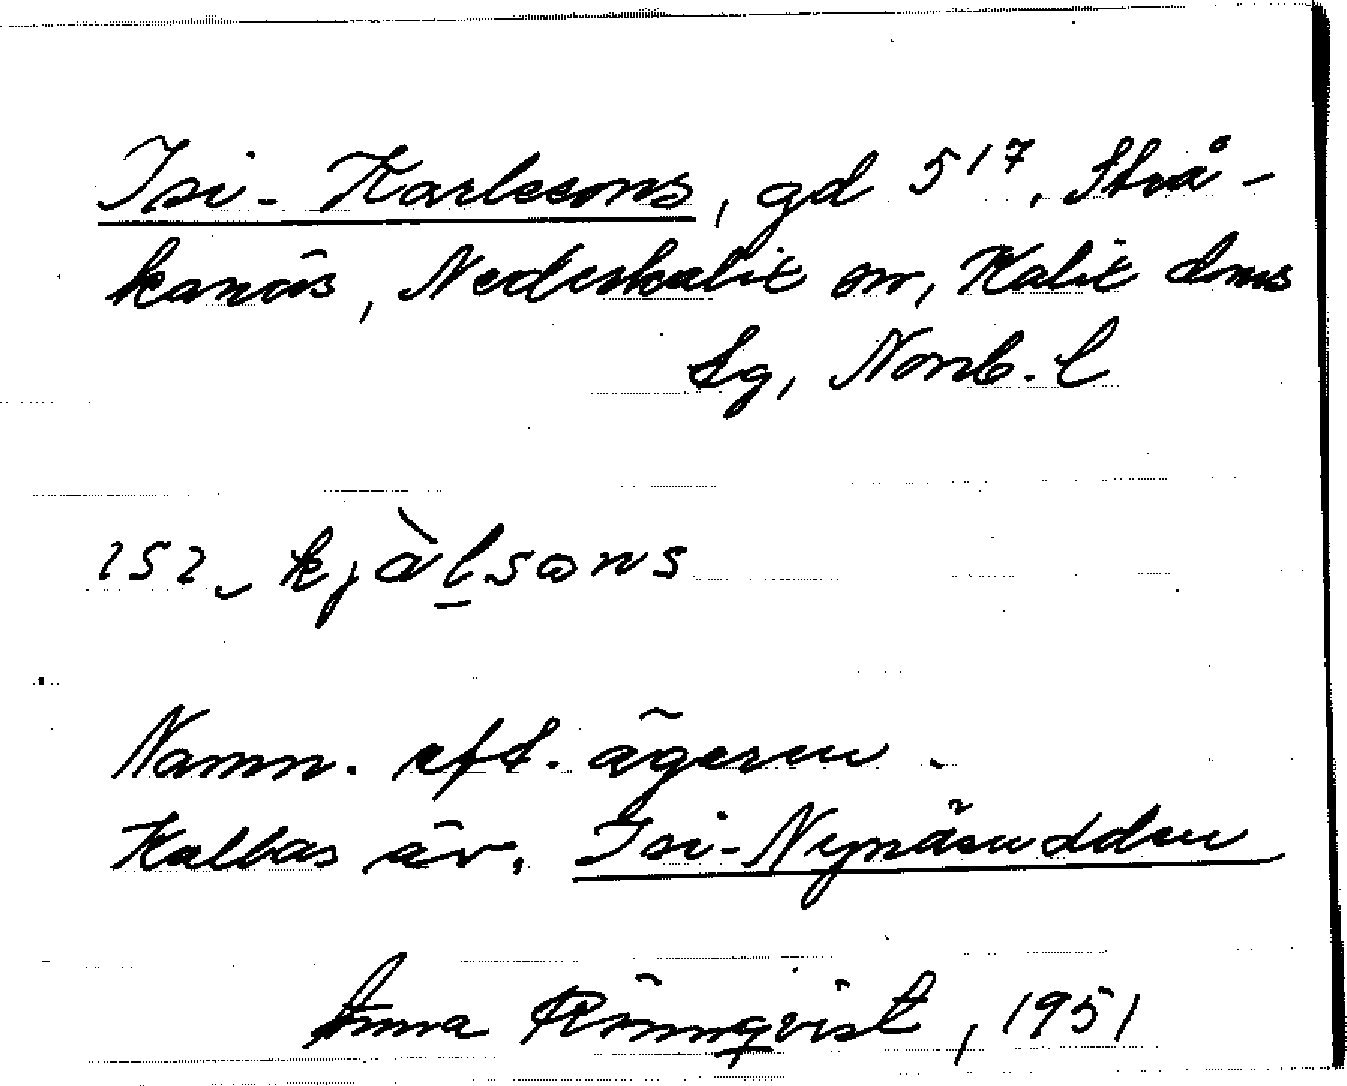 Isi-Karlssons, gd 5¹⁷, Strå-
kanäs, Nederkalix sn, Kalix dms
tg, Norrb. l
252, kjàl̲sɷns
Namn. eft. ägaren.
Kallas äv. Isi-Nynäsudden
Anna Rönnqvist, 1951